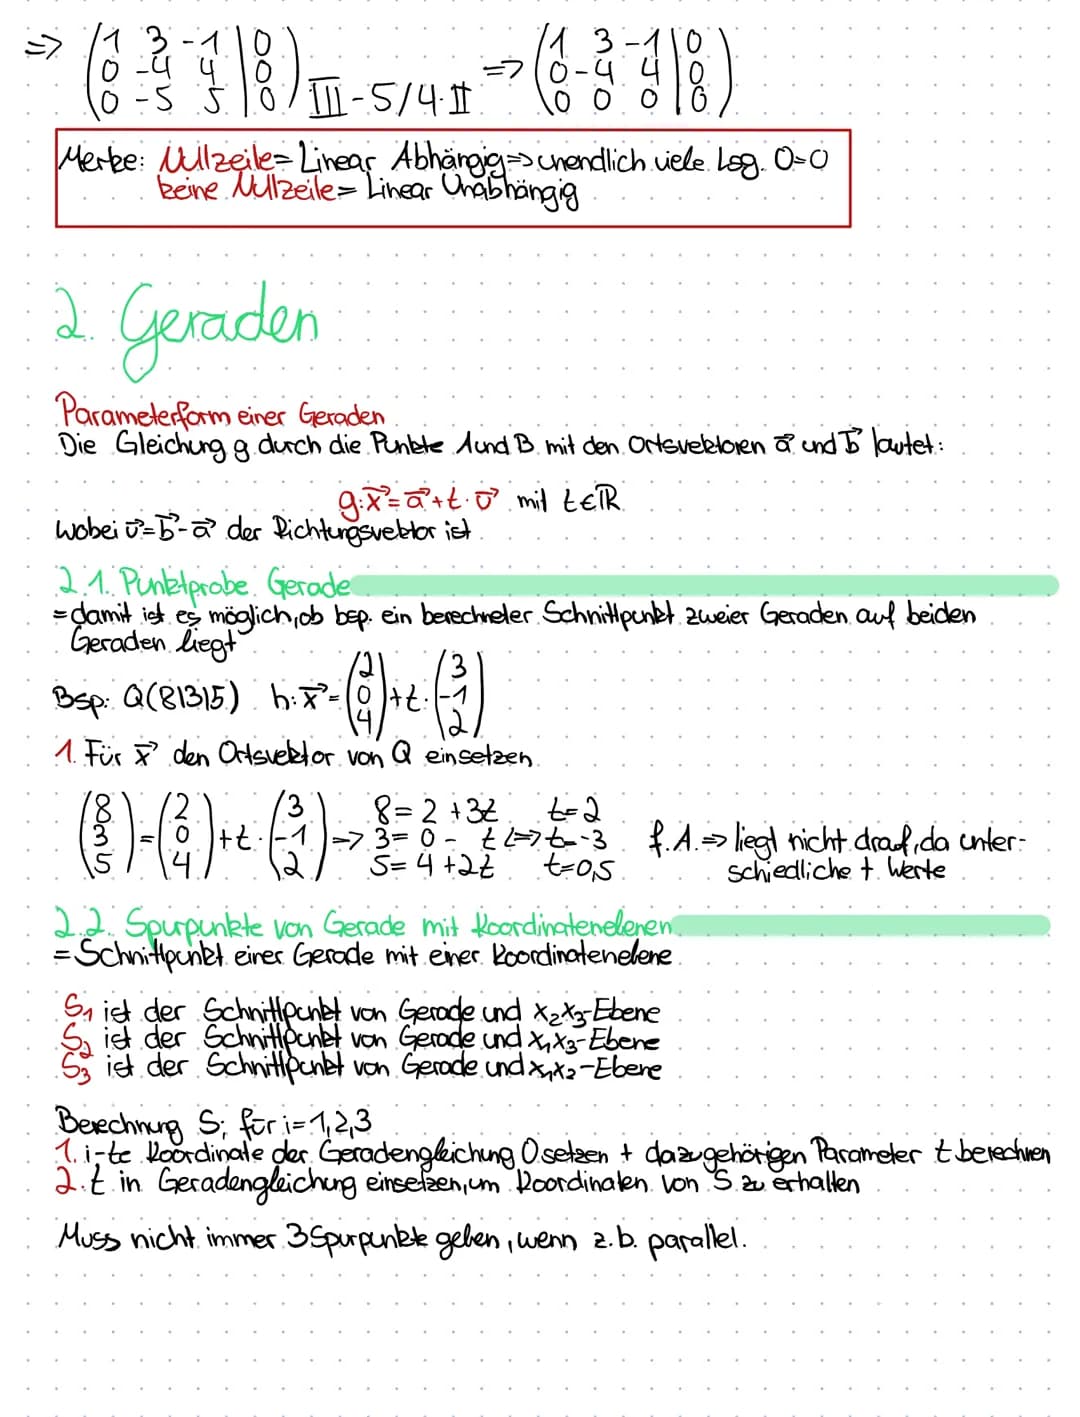 => (1 3 -1 | 0) => (1 3 -1 | 0)
(0 -4 4 | 0) (0 -4 4 | 0)
(0 -5 5 | 0) III - 5/4·II (0 0 0 | 0)
Merke: Nullzeile = Linear Abhängig => unendlich viele Lsg. 0=0
keine Nullzeile = Linear Unabhängig
2. Geraden
Parameterform einer Geraden
Die Gleichung g durch die Punkte A und B mit den Ortsvektoren a⃗ und b⃗ lautet:
g: x⃗ = a⃗ + t · v⃗ mit t∈ℝ
wobei v⃗ = b⃗ - a⃗ der Richtungsvektor ist
2.1. Punktprobe Gerade
= damit ist es möglich, ob bsp. ein berechneter Schnittpunkt zweier Geraden auf beiden
Geraden liegt
Bsp: Q(8|3|5) h: x⃗ = (2 0 4) + t · (3 -1 2)
1. Für x⃗ den Ortsvektor von Q einsetzen
(8 3 5) = (2 0 4) + t · (3 -1 2) => 8 = 2 + 3t t=2
3 = 0 - t <=> t=-3 f.A. => liegt nicht drauf, da unter-
5 = 4 + 2t t=0,5 schiedliche t Werte
2.2. Spurpunkte von Gerade mit Koordinatenelenen
= Schnittpunkt einer Gerade mit einer Koordinatenelene
S₁ ist der Schnittpunkt von Gerade und x₂x₃-Ebene
S₂ ist der Schnittpunkt von Gerade und x₁x₃-Ebene
S₃ ist der Schnittpunkt von Gerade und x₁x₂-Ebene
Berechnung Sᵢ für i=1,2,3
1. i-te Koordinate der Geradengleichung 0 setzen + dazugehörigen Parameter t berechnen
2. t in Geradengleichung einsetzen, um Koordinaten von S zu erhalten
Muss nicht immer 3 Spurpunkte geben, wenn z.b. parallel.